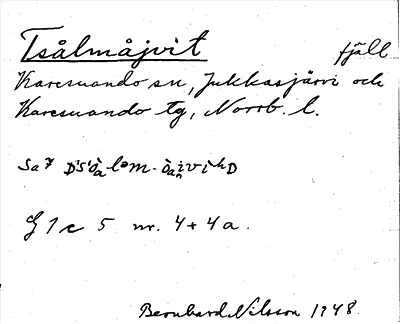 Tsålmåjvit fjäll
Karesuando sn, Jukkasjärvi och
Karesuando tg, Norrb. l.
Sa7
G 1 c 5 nr. 4 + 4 a.
Bernhard Nilsson 1948.